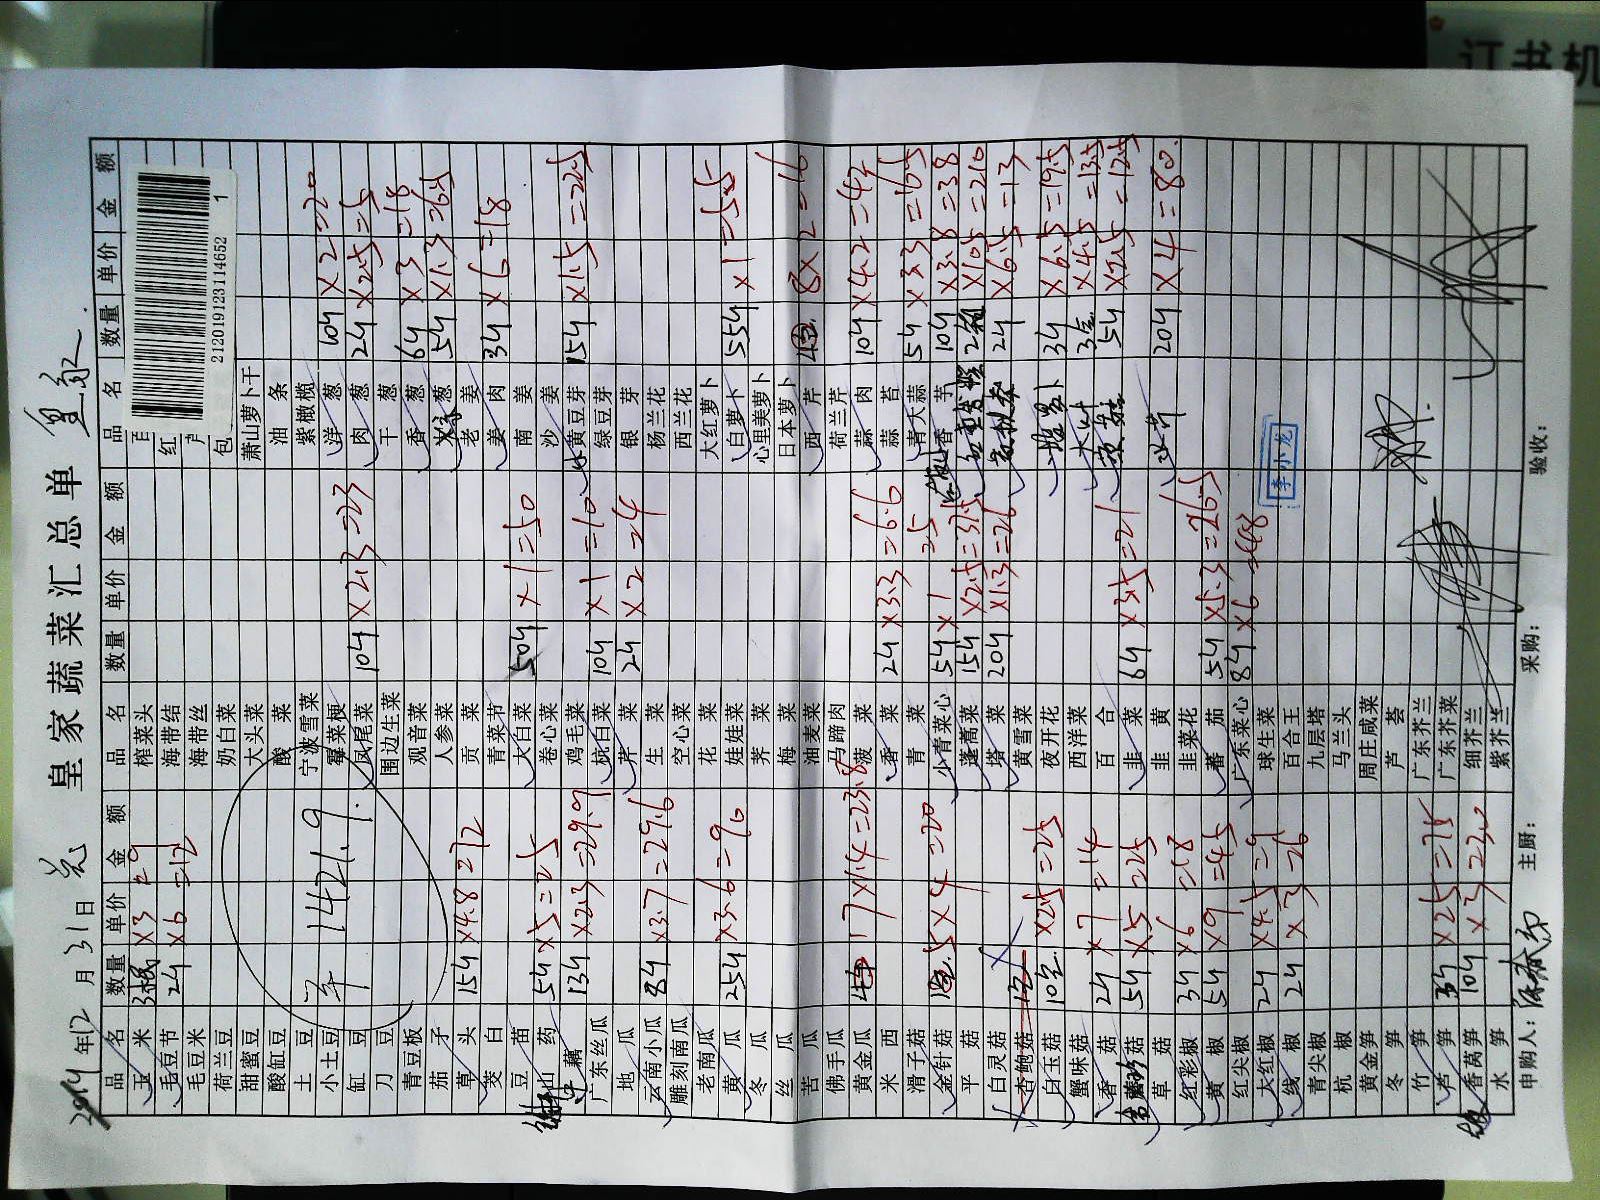 皇家蔬菜汇总单
2019年12月31日
品名 数量 单价 金额 品名 数量 单价 金额 品名 数量 单价 金额
玉米 3根 ×3 =9 榨菜头
毛豆节 2斤 ×6 =12 海带结 红
毛豆米 海带丝
荷兰豆 奶白菜 包
甜蜜豆 大头菜 萧山萝卜干
酸缸豆 酸菜 油条
土豆 宁波雪菜 紫橄榄
小土豆 霉菜梗 洋葱 10斤 ×2 =20
缸豆 凤尾菜 10斤 ×2.3 =23 肉葱 2斤 ×2.5 =5
刀豆 围边生菜 干葱
青豆板 观音菜 香葱 6斤 ×3 =18
茄子 人参菜 葱 5斤 ×1.3 =6.5
草头 15斤 ×4.8 =72 贡菜 老姜
茭白 青菜节 姜肉 3斤 ×6 =18
豆苗 大白菜 50斤 ×1 =50 南姜
山药 5斤 ×5 =25 卷心菜 沙姜
藕 13斤 ×2.3 =29.9 鸡毛菜 黄豆芽 15斤 ×1.5 =22.5
广东丝瓜 杭白菜 10斤 ×1 =10 绿豆芽
地瓜 芹菜 2斤 ×2 =4 银芽
云南小瓜 8斤 ×3.7 =29.6 生菜 杨兰花
雕刻南瓜 空心菜 西兰花
老南瓜 花菜 大红萝卜
黄瓜 25斤 ×3.6 =90 娃娃菜 白萝卜 55斤 ×1 =55
冬瓜 荠菜 心里美萝卜
丝瓜 梅菜 日本萝卜
苦瓜 油麦菜 西芹 8×2 =16
佛手瓜 马蹄肉 荷兰芹
黄金瓜 17×1.4 =23.8 菠菜 蒜肉 10斤 ×4.2 =42
米西 香菜 2斤 ×3.3 =6.6 蒜苔
滑子菇 青菜 青大蒜 5斤 ×3.3 =16.5
金针菇 5×4 =20 小青菜心 5斤 ×1 =5 香芋 10斤 ×3.8 =38
平菇 蓬蒿菜 15斤 ×2.5 =37.5 2箱 ×105 =210
白灵菇 塔菜 20斤 ×1.3 =26 2斤 ×6.5 =13
杏鲍菇 黄雪菜
白玉菇 10包 ×2.5 =25 夜开花 3斤 ×6.5 =19.5
蟹味菇 西洋菜 ×4.5 =13.5
香菇 2斤 ×7 =14 百合 5斤 ×2.5 =12.5
菇 5斤 ×5 =25 韭菜 6斤 ×3.5 =21
草菇 韭黄 水芹 20斤 ×4 =80
红彩椒 3斤 ×6 =18 韭菜花
黄椒 5斤 ×9 =45 番茄 5斤 ×5.3 =26.5
红尖椒 广东菜心 8斤 ×6 =48
大红椒 2斤 ×4.5 =9 球生菜
线椒 2斤 ×3 =6 百合王
青尖椒 九层塔
杭椒 马兰头
黄金笋 周庄咸菜
冬笋 芦荟
竹笋 广东芥兰
芦笋 3斤 ×25 =75 广东芥菜
香莴笋 10斤 ×3 =30 细芥兰
水笋 紫芥兰
1421.9
李小龙
申购人： 主厨： 采购： 验收：
2120191231114652 1
订书机